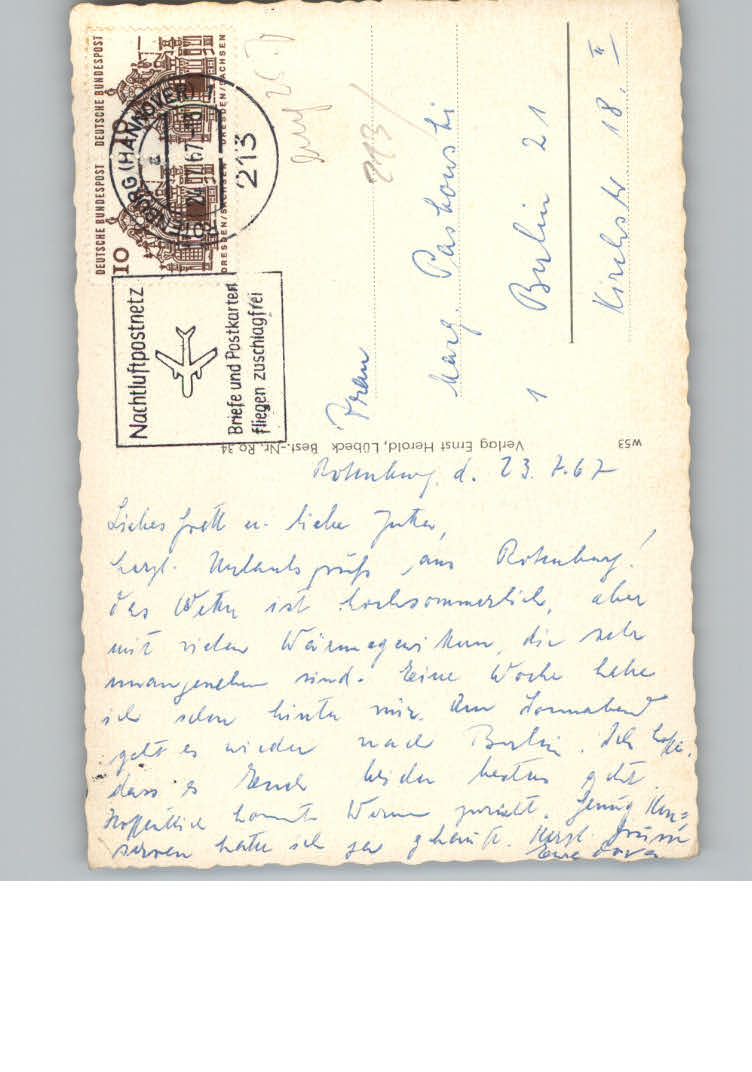 DEUTSCHE BUNDESPOST
10
DRESDEN/SACHSEN
DEUTSCHE BUNDESPOST
10
DRESDEN/SACHSEN
ROTENBURG (HANNOVER)
a
24.VII.67-18
213
Nachtluftpostnetz
Briefe und Postkarten
fliegen zuschlagfrei
213/
Frau
Marg. Paskowski
1 Berlin 21
Kirchstr 18. II
Verlag Ernst Herold, Lübeck Best.-Nr. Ro 34
W53
Rotenburg, d. 23.7.67
Liebes Gretl u. liebe
herzl. Urlaubsgrüße aus Rotenburg!
Das Wetter ist hochsommerlich, aber
mit vielen Wärmegewittern, die sehr
unangenehm sind. Eine Woche habe
ich schon hinter mir. Am Sonnabend
geht es wieder nach Berlin. Ich hoffe,
dass es Euch beiden bestens geht.
Hoffentlich kommt Werner zurecht. Genug Kon=
serven hatte ich ja gekauft. Herzl. Grüsse
Eure Dora